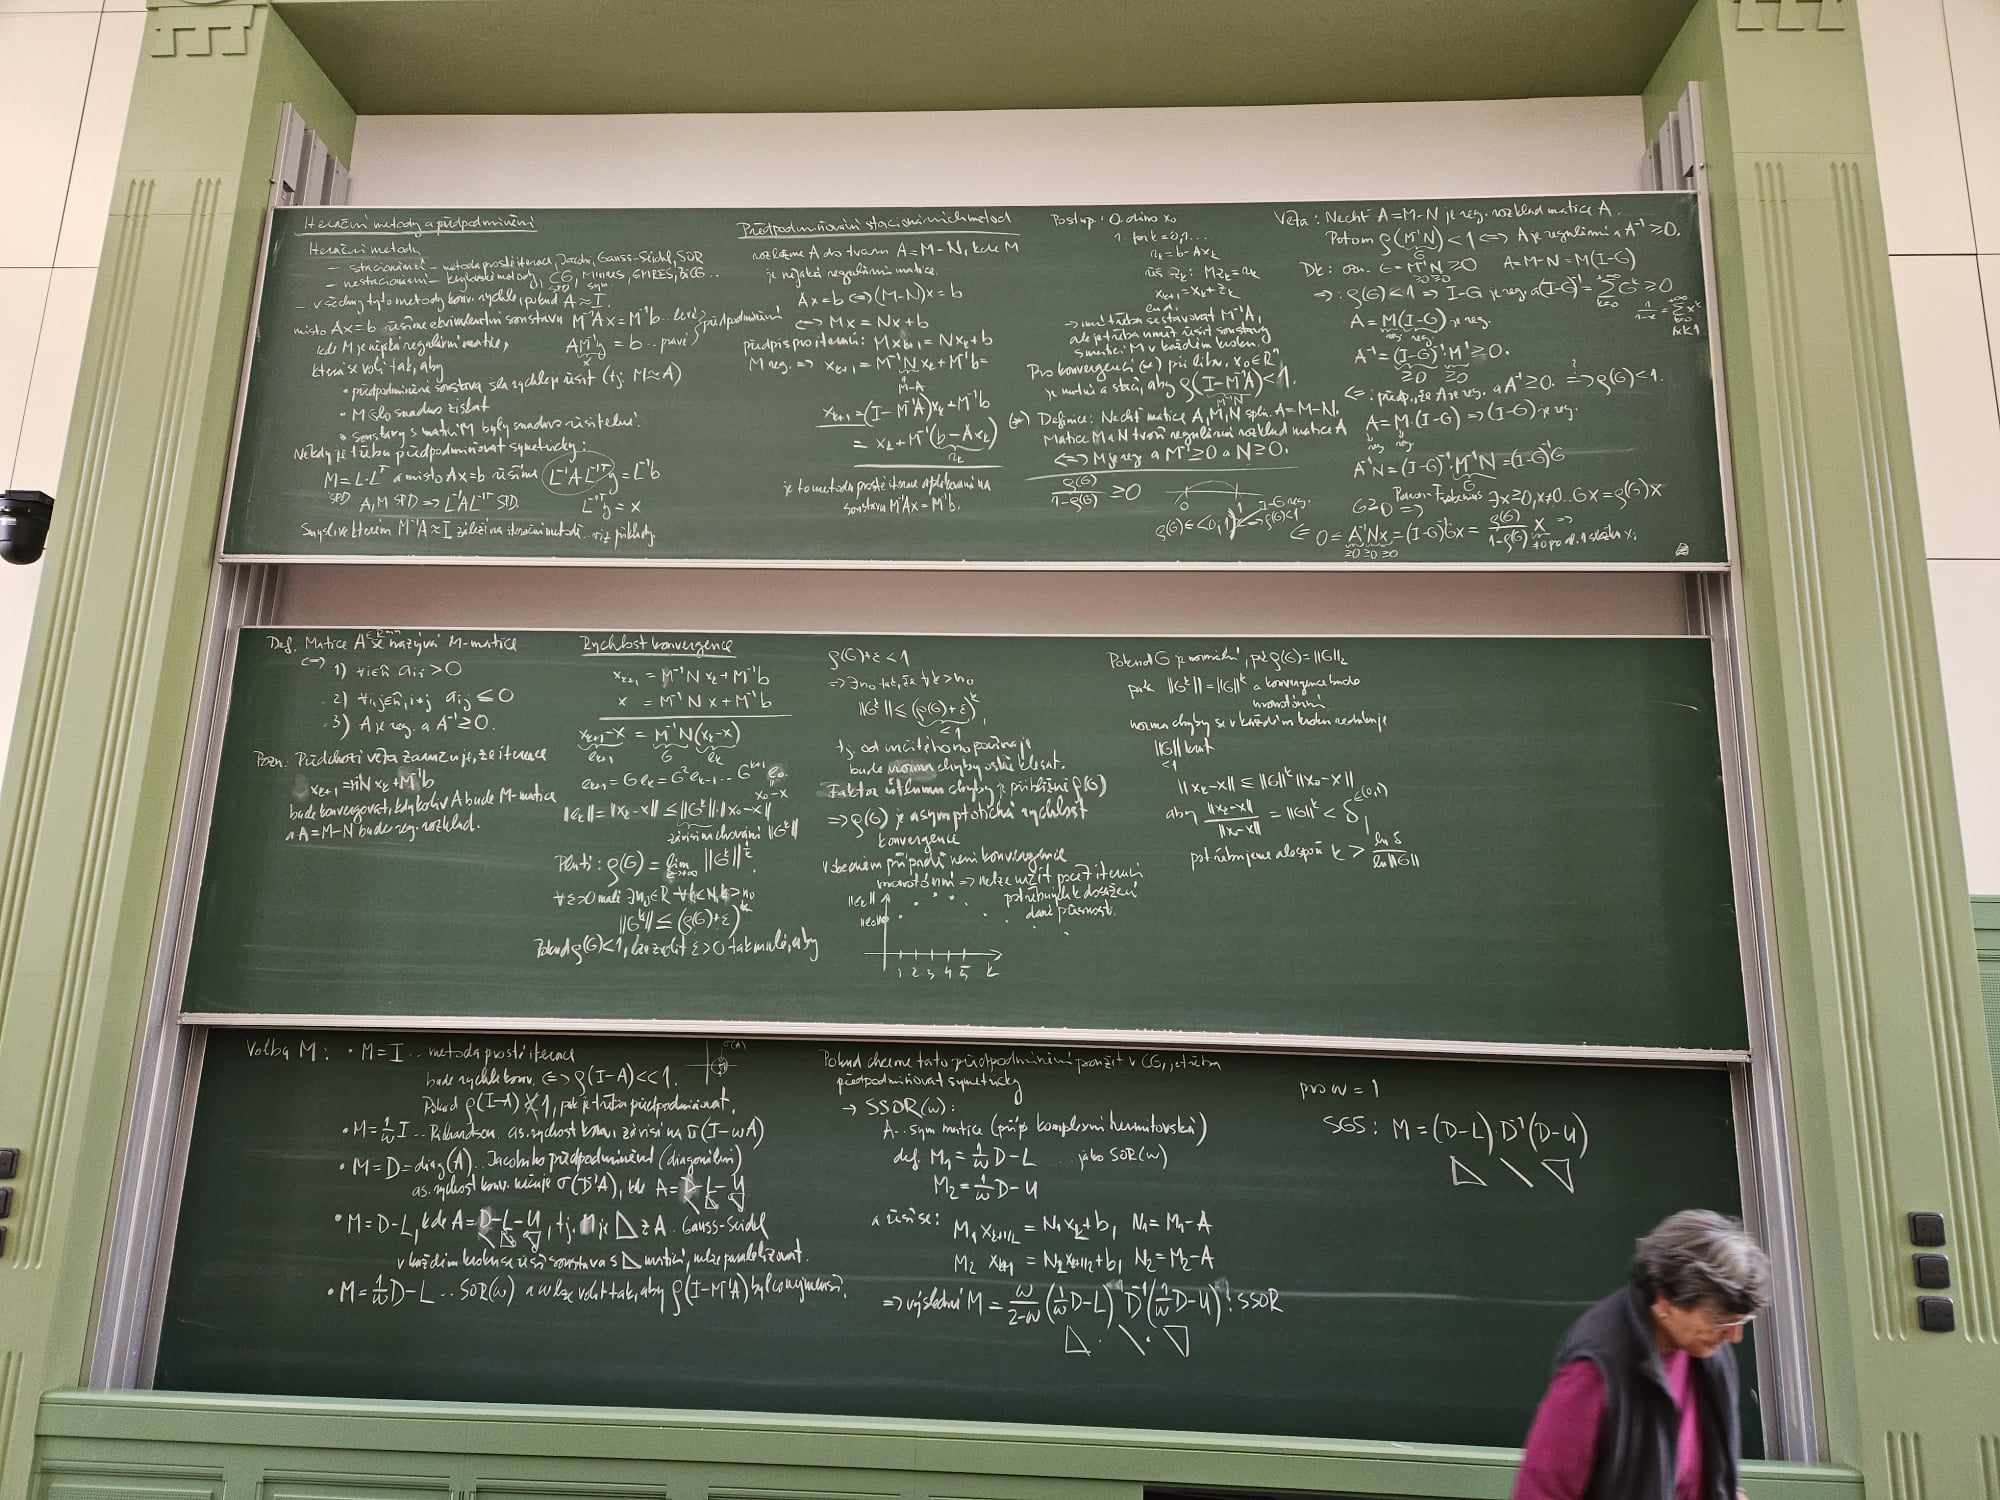 Iterační metody a předpodmínění
Iterační metody
– stacionární – metoda prosté iterace, Jacobi, Gauss-Seidel, SOR
– nestacionární – krylovské metody, CG, MINRES, GMRES, BiCG...
SPD sym
– všechny tyto metody konv. rychle, pokud A ≈ I
místo Ax=b řešíme ekvivalentní soustavu M⁻¹Ax = M⁻¹b .. levé
kde M je nějaká regulární matice, AM⁻¹y = b .. pravé } předpodmínění
x
která se volí tak, aby
• předpodmíněná soustava šla rychleji řešit (tj. M≈A)
• M šlo snadno získat
• soustavy s maticí M byly snadno řešitelné.
Někdy je třeba předpodmiňovat symetricky:
M = L·Lᵀ a místo Ax=b řešíme L⁻¹AL⁻ᵀy = L⁻¹b
SPD A, M SPD ⇒ L⁻¹AL⁻ᵀ SPD. L⁻ᵀy = x
Smysl ve kterém M⁻¹A ≈ I záleží na iterační metodě .. viz příklady
Předpodmiňování stacionárních metod
rozložíme A do tvaru A = M-N, kde M
je nějaká regulární matice.
Ax = b ⇔ (M-N)x = b
⇔ Mx = Nx + b
předpis pro iterace: Mxₖ₊₁ = Nxₖ + b
M reg. ⇒ xₖ₊₁ = M⁻¹Nxₖ + M⁻¹b =
M-A
xₖ₊₁ = (I - M⁻¹A)xₖ + M⁻¹b
= xₖ + M⁻¹(b - Axₖ)
rₖ
je to metoda prosté iterace aplikovaná na
soustavu M⁻¹Ax = M⁻¹b.
Postup: 0. dáno x₀
1. for k=0,1...
rₖ = b - Axₖ
řeš zₖ: Mzₖ = rₖ
xₖ₊₁ = xₖ + zₖ
end
→ není třeba sestavovat M⁻¹A,
ale je třeba umět řešit soustavy
s maticí M v každém kroku.
Pro konvergenci (*) při libov. x₀∈Rⁿ
je nutné a stačí, aby ρ(I-M⁻¹A) < 1.
M⁻¹N
(*) Definice: Nechť matice A, M, N spln. A = M-N.
Matice M a N tvoří regulární rozklad matice A
⇔ M je reg. a M⁻¹ ≥ 0 a N ≥ 0.
ρ(G)/(1-ρ(G)) ≥ 0
0 1
I-G reg.
ρ(G) ∈ <0,1) ⇒ ρ(G)<1
Věta: Nechť A = M-N je reg. rozklad matice A.
Potom ρ(M⁻¹N) < 1 ⇔ A je regulární a A⁻¹ ≥ 0.
G
Dk: ozn. G = M⁻¹N ≥ 0 A = M-N = M(I-G)
≥0 ≥0
⇒: ρ(G) < 1 ⇒ I-G je reg. a (I-G)⁻¹ = Σₖ₌₀^{+∞} Gᵏ ≥ 0
1/(1-x) = Σₖ₌₀^{+∞} xᵏ
|x|<1
A = M(I-G) je reg.
reg reg
A⁻¹ = (I-G)⁻¹·M⁻¹ ≥ 0.
≥0 ≥0
⇐: předp., že A je reg. a A⁻¹ ≥ 0. ⇒? ρ(G) < 1.
A = M·(I-G) ⇒ (I-G) je reg.
reg reg.
A⁻¹N = (I-G)⁻¹·M⁻¹N = (I-G)⁻¹G
G
G ≥ 0 ⇒ Perron-Frobenius ∃x≥0, x≠0.. Gx = ρ(G)x
⇐ 0 ≤ A⁻¹Nx = (I-G)⁻¹Gx = ρ(G)/(1-ρ(G)) x ⇒
≥0 ≥0 ≥0
Def. Matice A ∈ Rⁿˣⁿ se nazývá M-matice
⇔ 1) ∀i∈n̂ aᵢᵢ > 0
2) ∀i,j∈n̂, i≠j aᵢⱼ ≤ 0
3) A je reg. a A⁻¹ ≥ 0.
Pozn. Předchozí věta zaručuje, že iterace
xₖ₊₁ = M⁻¹Nxₖ + M⁻¹b
bude konvergovat, kdykoliv A bude M-matice
a A = M-N bude reg. rozklad.
Rychlost konvergence
xₖ₊₁ = M⁻¹Nxₖ + M⁻¹b
x = M⁻¹Nx + M⁻¹b
xₖ₊₁-x = M⁻¹N(xₖ-x)
eₖ₊₁ G eₖ
eₖ₊₁ = Geₖ = G²eₖ₋₁ .. Gᵏ⁺¹ e₀.
x₀-x
‖eₖ‖ = ‖xₖ-x‖ ≤ ‖Gᵏ‖·‖x₀-x‖
závisí na chování ‖Gᵏ‖
Platí: ρ(G) = lim_{k→+∞} ‖Gᵏ‖^{1/k}.
∀ε>0 malé ∃n₀∈R ∀k∈N, k>n₀
‖Gᵏ‖ ≤ (ρ(G)+ε)ᵏ
Pokud ρ(G)<1, lze zvolit ε>0 tak malé, aby
ρ(G)+ε < 1
⇒ ∃n₀ tak, že ∀k>n₀
‖Gᵏ‖ ≤ (ρ(G)+ε)ᵏ,
<1
tj. od určitého n₀ počínaje
bude norma chyby ostře klesat.
Faktor útlumu chyby je přibližně ρ(G)
⇒ ρ(G) je asymptotická rychlost
konvergence
V obecném případě není konvergence
monotónní ⇒ nelze určit počet iterací
potřebných k dosažení
dané přesnosti.
‖eₖ‖
‖e₀‖
1 2 3 4 5 k
Pokud G je normální, pak ρ(G) = ‖G‖₂
pak ‖Gᵏ‖ = ‖G‖ᵏ a konvergence bude
monotónní.
norma chyby se v každém kroku redukuje
‖G‖ krát
<1
‖xₖ-x‖ ≤ ‖G‖ᵏ ‖x₀-x‖
aby ‖xₖ-x‖/‖x₀-x‖ = ‖G‖ᵏ < δ, ∈(0,1)
potřebujeme alespoň k > ln δ / ln‖G‖
Volba M: • M = I .. metoda prosté iterace
σ(A)
bude rychle konv. ⇔ ρ(I-A) << 1.
Pokud ρ(I-A) ≮ 1, pak je třeba předpodmiňovat.
• M = 1/ω I .. Richardson as. rychlost konv. závisí na σ(I-ωA)
• M = D = diag(A) .. Jacobiho předpodmínění (diagonální)
as. rychlost konv. určuje σ(D⁻¹A), kde A = D-L-U
• M = D-L, kde A = D-L-U, tj. M je ◺ z A. Gauss-Seidel
v každém kroku se řeší soustava s ◺ maticí, nelze paralelizovat.
• M = 1/ω D-L .. SOR(ω) a ω lze volit tak, aby ρ(I-M⁻¹A) byl co nejmenší.
Pokud chceme tato předpodmínění použít v CG, je třeba
předpodmiňovat symetricky
→ SSOR(ω):
A.. sym matice (příp. komplexní hermitovská)
def. M₁ = 1/ω D-L .. jako SOR(ω)
M₂ = 1/ω D-U
a řeší se: M₁xₖ₊₁/₂ = N₁xₖ+b, N₁ = M₁-A
M₂ xₖ₊₁ = N₂xₖ₊₁/₂+b, N₂ = M₂-A
⇒ výslední M = ω/(2-ω) (1/ω D-L) D⁻¹ (1/ω D-U) : SSOR
pro ω = 1
SGS: M = (D-L)·D⁻¹(D-U)